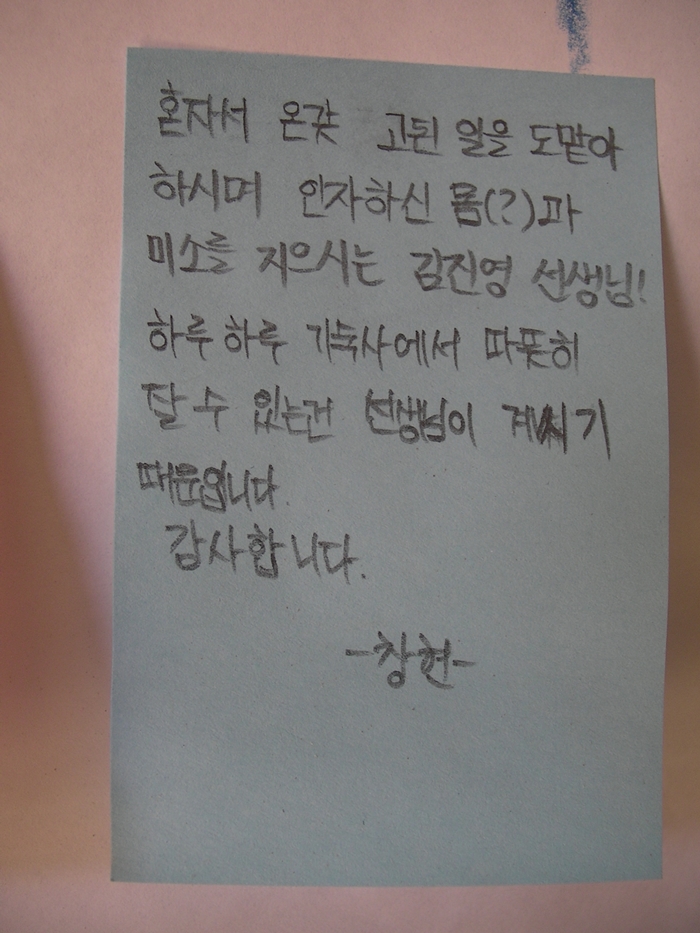 혼자서 온갖 고된 일을 도맡아
하시며 인자하신 몸(?)과
미소를 지으시는 김진영 선생님!
하루하루 기숙사에서 따뜻히
잘 수 있는건 선생님이 계시기
때문입니다.
감사합니다.
-창현-